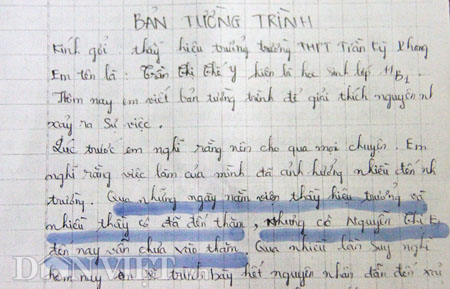 BẢN TƯỜNG TRÌNH
Kính gởi : thầy hiệu trưởng trường THPT Trần Kỳ Phong
Em tên là : Trần Thị Thế Y hiện là học sinh lớp 11B1
Hôm nay em viết bản tường trình để giải thích nguyên nh
xảy ra Sự việc.
Lúc trước em nghĩ rằng nên cho qua mọi chuyện. Em
nghĩ rằng việc làm của mình đã ảnh hưởng nhiều đến nh
trường. Qua những ngày nằm viện thầy hiệu trưởng và
nhiều thầy cô đã đến thăm, nhưng cô Nguyễn Thị E
đến nay vẫn chưa vào thăm. Qua nhiều lần suy nghĩ
hôm nay em sẽ trình bày hết nguyên nhân dẫn đến xả
DÂN VIỆT